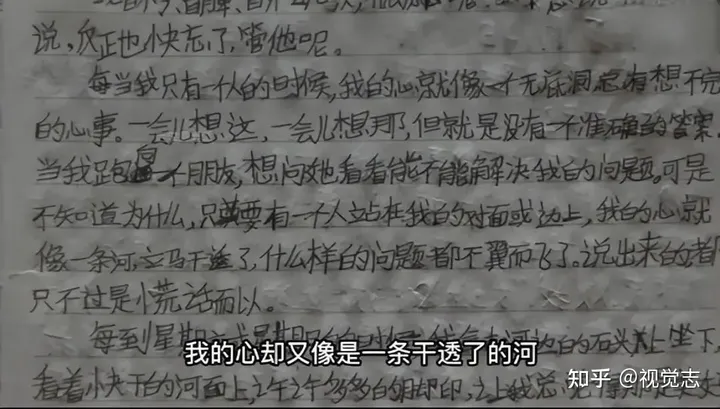 说，反正也快忘了，管他呢。
每当我只有一个人的时候，我的心就像一个无底洞总有想不完
的心事。一会儿想这，一会儿想那，但就是没有一个准确的答案。
当我跑向一个朋友，想问她看看能不能解决我的问题。可是
不知道为什么，只要有一个人立占在我的对面或边上，我的心就
像一条河，立马干透了，什么样的问题都不翼而飞了。说出来的者
只不过是慌话而以。
每到星期
的石头上坐下，
我的心却又像是一条干透了的河
看着小快干的河面上
知乎 @视觉志